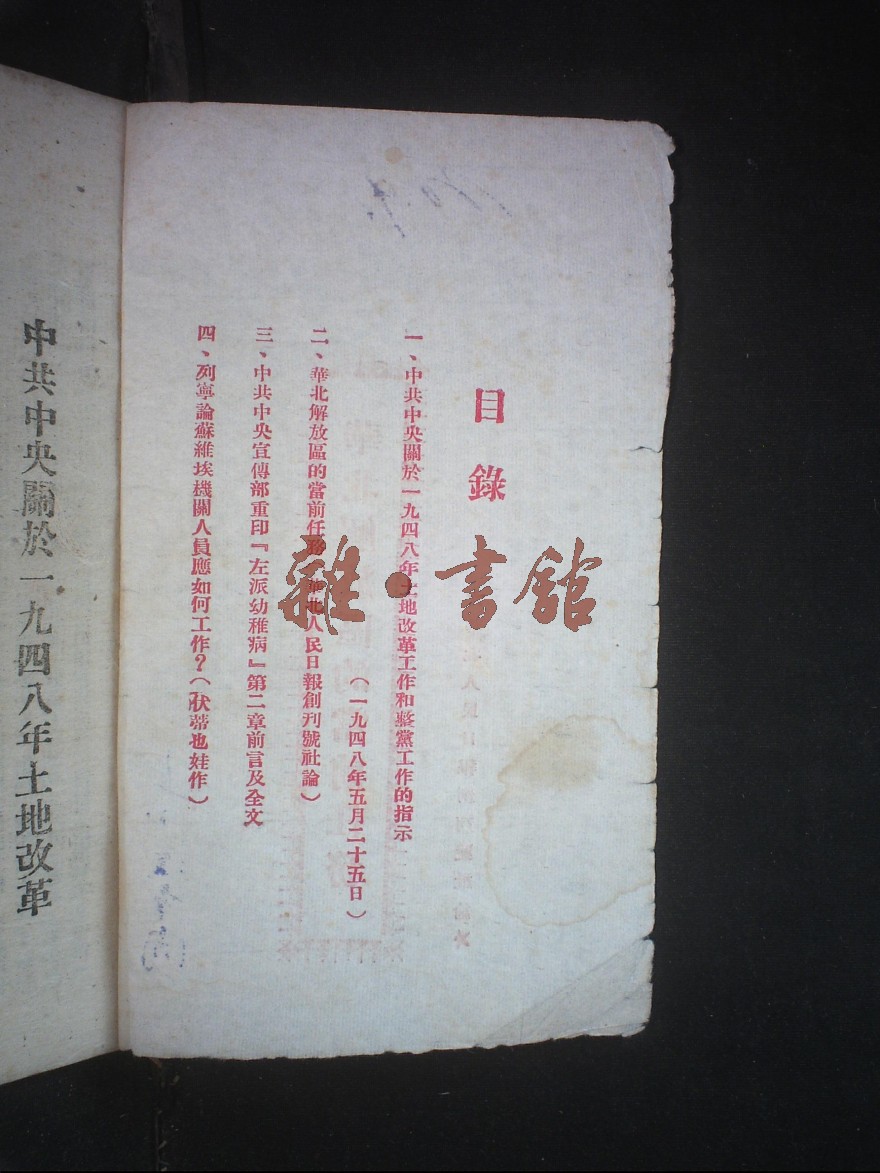 目錄
一、中共中央關於一九四八年土地改革工作和整黨工作的指示
（一九四八年五月二十五日）
二、華北解放區的當前任務 華北人民日報創刊號社論）
三、中共中央宣傳部重印『左派幼稚病』第二章前言及全文
四、列寧論蘇維埃機關人員應如何工作？（伏蒂也娃作）
中共中央關於一九四八年土地改革
雜·書館